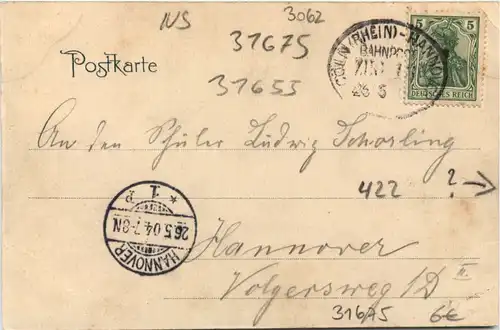 NS 3062
31675
31653
Postkarte
5
DEUTSCHES REICH
CÖLN (RHEIN)-HANNOVER
BAHNPOST
ZUG
26 5
An den Schüler Ludwig Schorling
422 ? →
* 1. P
26.5.04.7-8N.
HANNOVER
Hannover
Volgersweg 1D II.
31675 6€